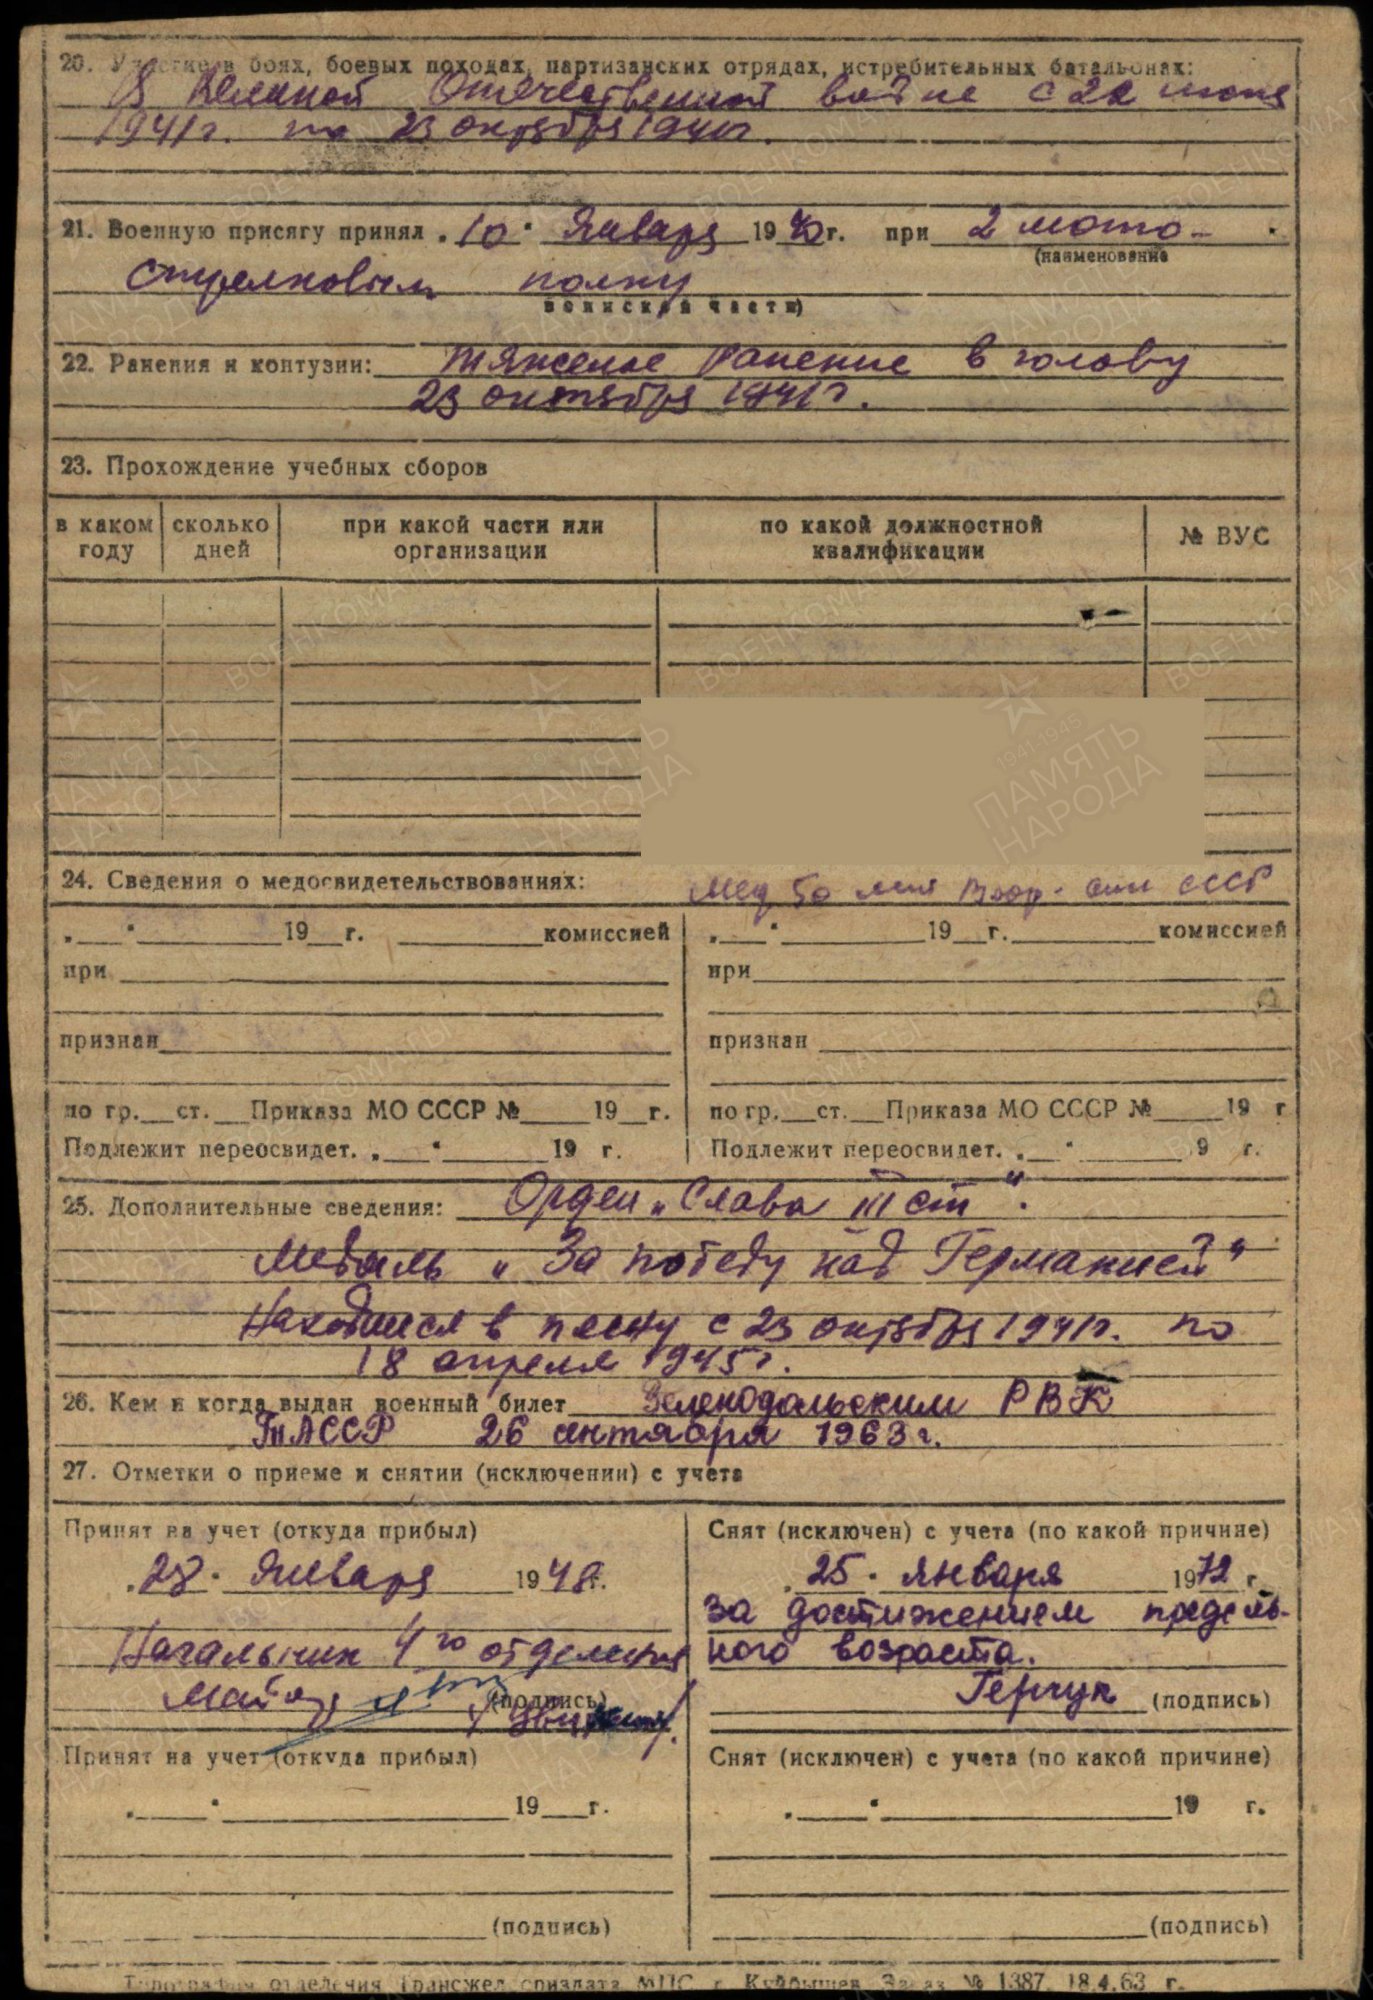 20. Участие в боях, боевых походах, партизанских отрядах, истребительных батальонах:
В Великой Отечественной войне с 22 июня
1941г. по 23 октября 1941г.
21. Военную присягу принял „10“ Января 1940г. при 2 мото-
(наименование
стрелковым полку
воинской части)
22. Ранения и контузии: тяжелое ранение в голову
23 октября 1941г.
23. Прохождение учебных сборов
в каком году
сколько дней
при какой части или организации
по какой должностной квалификации
№ ВУС
24. Сведения о медосвидетельствованиях:
Мед 50 лет Воор. сил СССР
„ “ 19 г. комиссией
при
признан
по гр. ст. Приказа МО СССР № 19 г.
Подлежит переосвидет. „ “ 19 г.
„ “ 19 г. комиссией
при
признан
по гр. ст. Приказа МО СССР № 19 г
Подлежит переосвидет. „ “ 9 г.
25. Дополнительные сведения: Орден „Слава III ст“.
Медаль „За победу над Германией“
Находился в плену с 23 октября 1941г. по
18 апреля 1945г.
26. Кем и когда выдан военный билет Зеленодольским РВК
ТАССР 26 сентября 1963г.
27. Отметки о приеме и снятии (исключении) с учета
Принят на учет (откуда прибыл)
„28“ Января 1948г.
Начальник 4го отделения
Майор
(подпись)
Снят (исключен) с учета (по какой причине)
„25“ января 1972 г.
за достижением предель-
ного возраста.
Герчук (подпись)
Принят на учет (откуда прибыл)
„ “ 19 г.
(подпись)
Снят (исключен) с учета (по какой причине)
„ “ 19 г.
(подпись)
Типография отделения Трансжелдориздата МПС г. Куйбышев Заказ № 1387. 18.4.63 г.
ПАМЯТЬ НАРОДА
1941-1945
ВОЕНКОМАТЫ